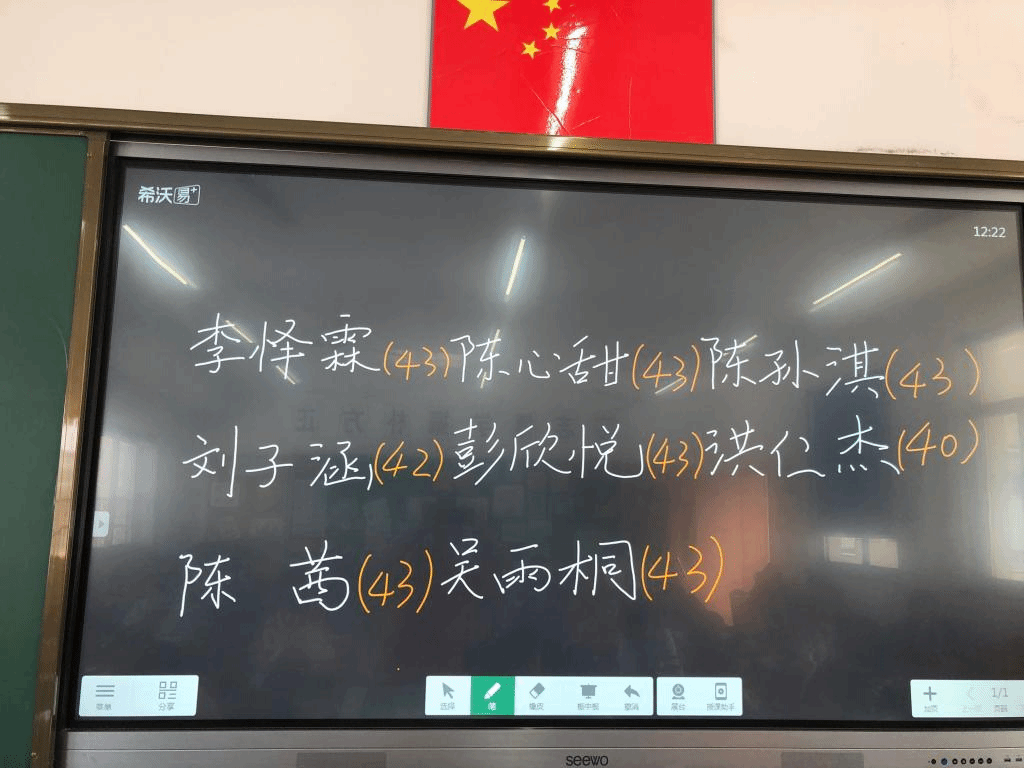 希沃易+
12:22
李怿霖(43)陈心甜(43)陈孙淇(43)
刘子涵(42)彭欣悦(43)洪仁杰(40)
陈 茜(43)吴雨桐(43)
菜单 分享 选择 笔 橡皮 板中板 撤消 展台 授课助手 加页 上一页 1/1 页码
seewo